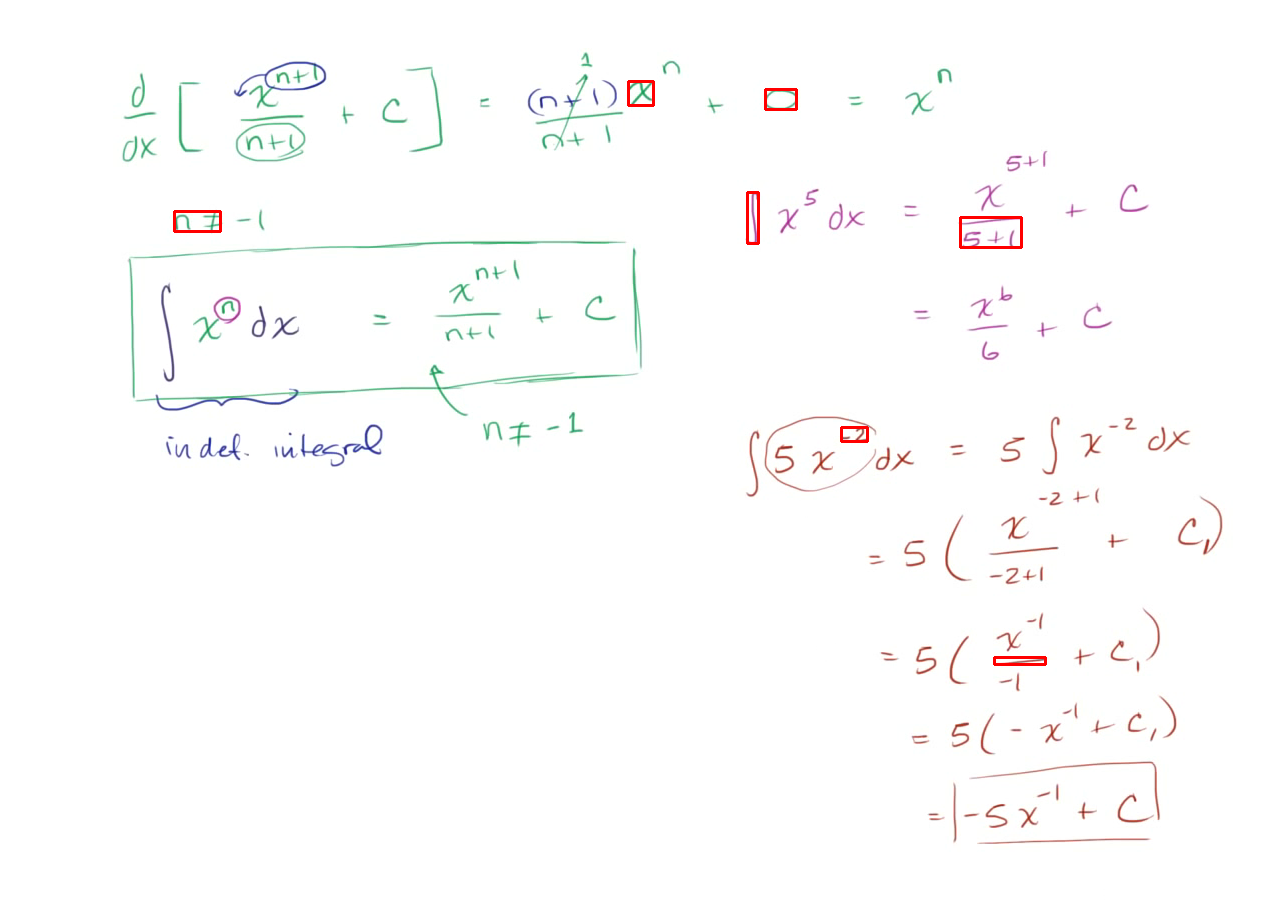 d/dx [ x^(n+1)/(n+1) + C ] = (n+1)/(n+1) x^n + 0 = x^n
1
n ≠ -1
∫ x^n dx = x^(n+1)/(n+1) + C
n ≠ -1
indef. integral
∫ x^5 dx = x^(5+1)/(5+1) + C
= x^6/6 + C
∫ 5x^(-2) dx = 5 ∫ x^(-2) dx
= 5 ( x^(-2+1)/(-2+1) + C₁)
= 5 ( x^(-1)/(-1) + C₁)
= 5 ( - x^(-1) + C₁)
= -5x^(-1) + C